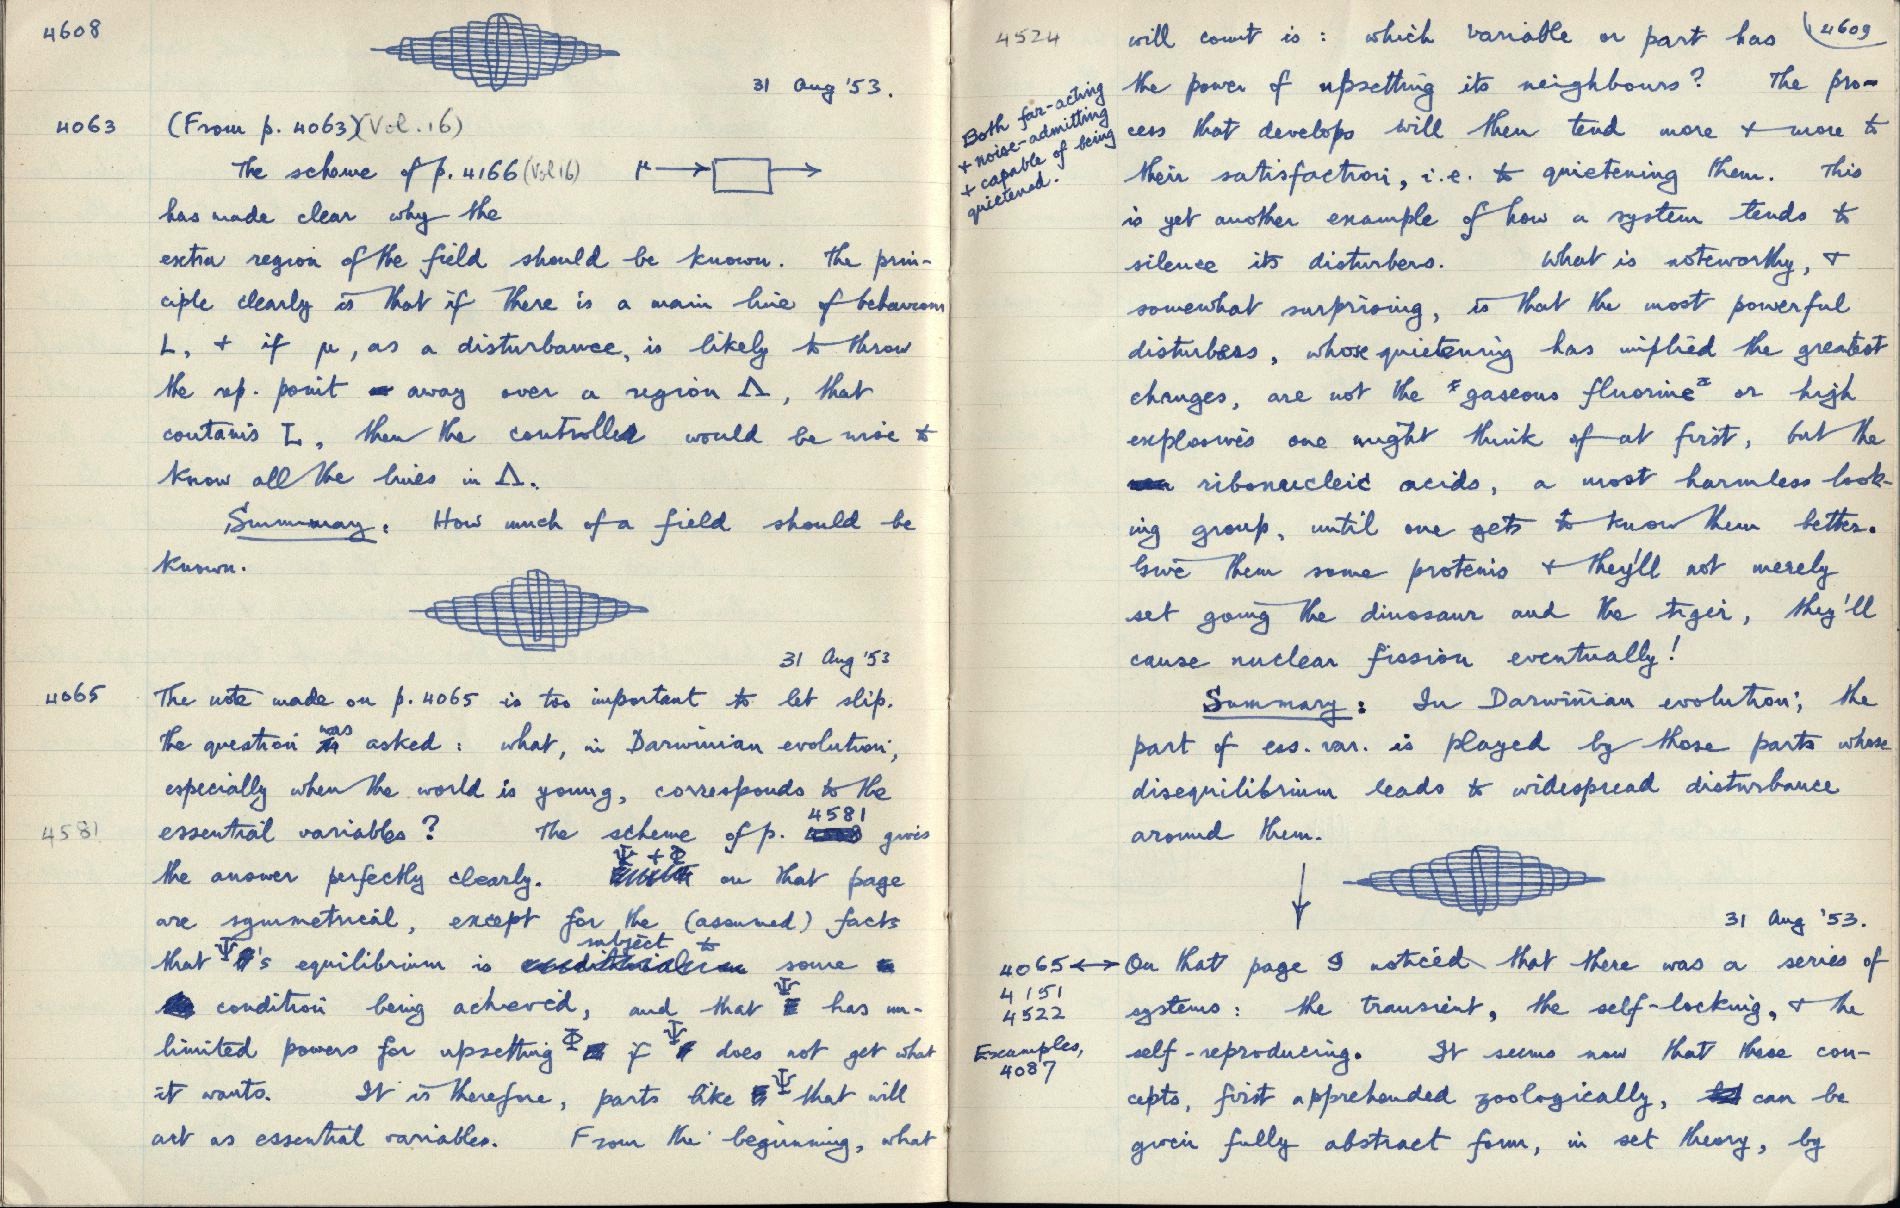 4608
31 Aug '53.
4063 (From p. 4063)(Vol. 16)
The scheme of p. 4166 (Vol 16) μ
has made clear why the
extra region of the field should be known. The prin-
ciple clearly is that if there is a main line of behaviour
L, + if μ, as a disturbance, is likely to throw
the rep. point away over a region Λ, that
contains L, then the controller would be wise to
know all the lines in Λ.
Summary: How much of a field should be
known.
31 Aug '53
4065 The note made on p. 4065 is too important to let slip.
The question was asked: what, in Darwinian evolution,
especially when the world is young, corresponds to the
4581 essential variables? The scheme of p. 4581 gives
the answer perfectly clearly. Ψ + Φ on that page
are symmetrical, except for the (assumed) facts
that Ψ's equilibrium is subject to some
condition being achieved, and that Ψ has un-
limited powers for upsetting Φ if Ψ does not get what
it wants. It is therefore, parts like Ψ that will
act as essential variables. From the beginning, what
4609
4524 will count is: which variable or part has
the power of upsetting its neighbours? The pro-
cess that develops will then tend more + more to
their satisfaction, i.e. to quietening them. This
is yet another example of how a system tends to
silence its disturbers. What is noteworthy, +
somewhat surprising, is that the most powerful
disturbers, whose quietening has implied the greatest
changes, are not the "gaseous fluorine" or high
explosives one might think of at first, but the
ribonucleic acids, a most harmless look-
ing group, until one gets to know them better.
Give them some proteins + they'll not merely
set going the dinosaur and the tiger, they'll
cause nuclear fission eventually!
Both far-acting
+ noise-admitting
+ capable of being
quietened.
Summary: In Darwinian evolution, the
part of ess. var. is played by those parts whose
disequilibrium leads to widespread disturbance
around them.
31 Aug '53.
4065 ↔ On that page I noticed that there was a series of
4151
4522 systems: the transient, the self-locking, + the
Examples, self-reproducing. It seems now that these con-
4087
cepts, first apprehended zoologically, can be
given fully abstract form, in set theory, by